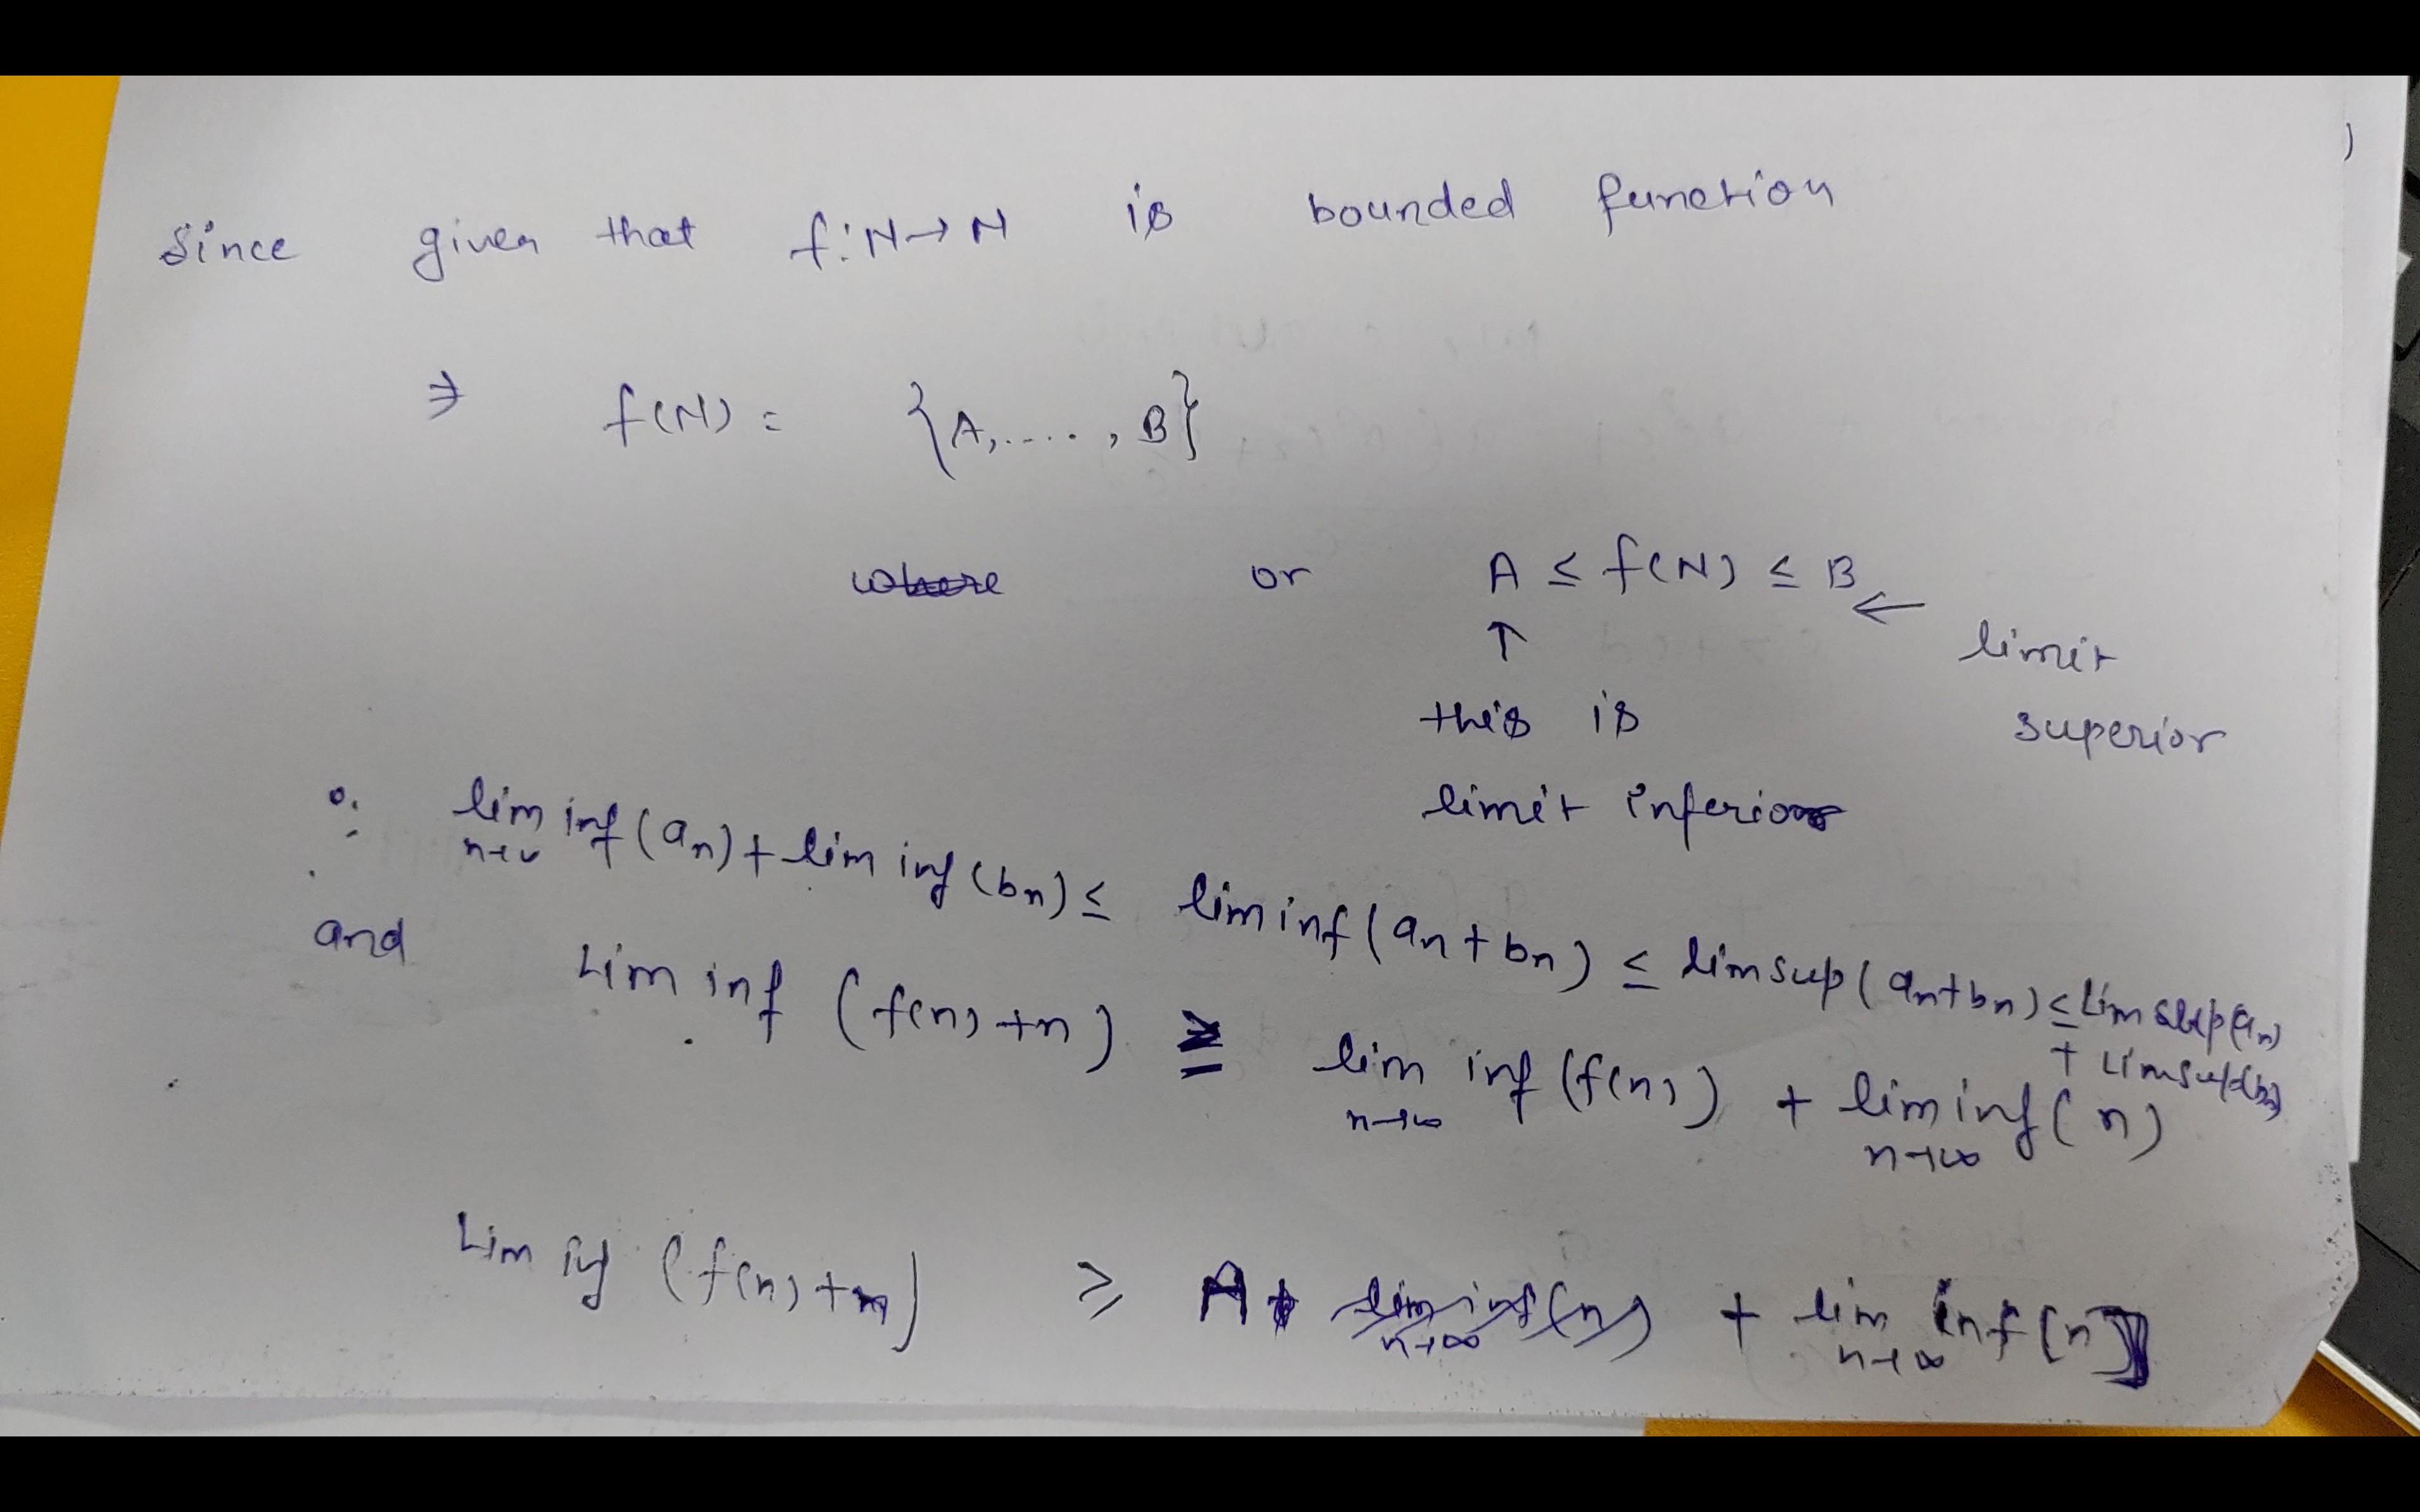 Since given that f:N→N is bounded function
⇒ f(N) = {A,....., B}
where or A ≤ f(N) ≤ B
↑ ← limit
this is superior
limit inferior
∵ lim inf(an) + lim inf(bn) ≤ lim inf(an+bn) ≤ lim sup(an+bn) ≤ Lim sup(an)
n→∞ + Lim sup(bn)
and Lim inf (f(n)+n) ≥ lim inf (f(n)) + lim inf(n)
n→∞ n→∞
Lim inf (f(n)+n) ≥ A + lim inf(n) + lim inf(n)
n→∞ n→∞